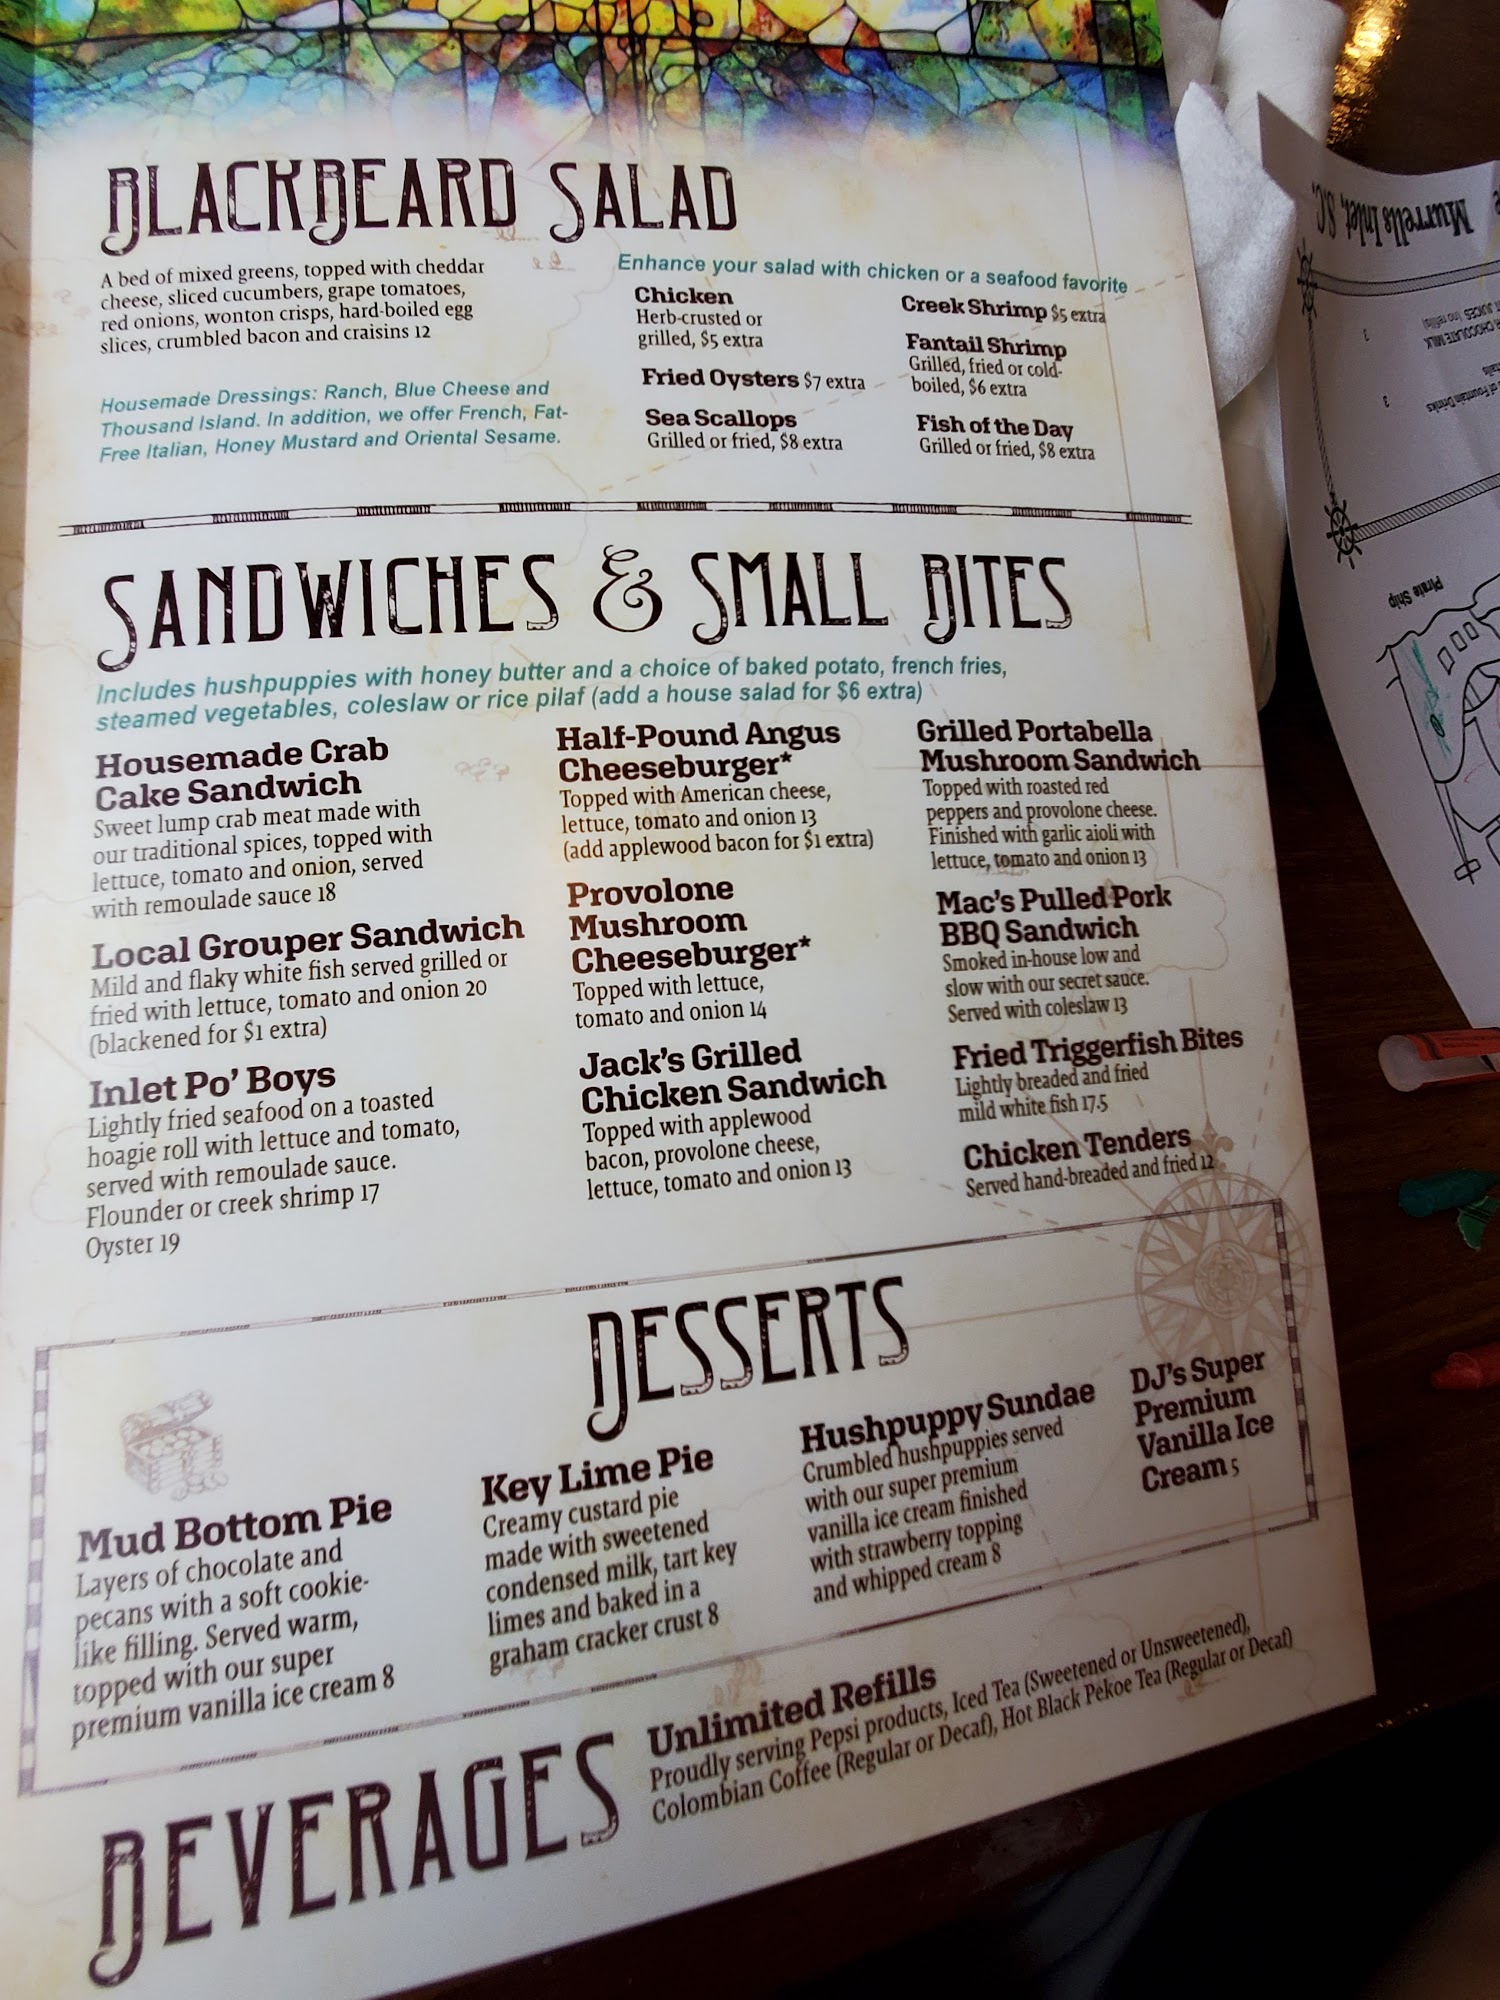 BLACKBEARD SALAD
A bed of mixed greens, topped with cheddar
cheese, sliced cucumbers, grape tomatoes,
red onions, wonton crisps, hard-boiled egg
slices, crumbled bacon and craisins 12
Housemade Dressings: Ranch, Blue Cheese and
Thousand Island. In addition, we offer French, Fat-
Free Italian, Honey Mustard and Oriental Sesame.
Enhance your salad with chicken or a seafood favorite
Chicken
Herb-crusted or
grilled, $5 extra
Fried Oysters $7 extra
Sea Scallops
Grilled or fried, $8 extra
Creek Shrimp $5 extra
Fantail Shrimp
Grilled, fried or cold-
boiled, $6 extra
Fish of the Day
Grilled or fried, $8 extra
SANDWICHES & SMALL BITES
Includes hushpuppies with honey butter and a choice of baked potato, french fries,
steamed vegetables, coleslaw or rice pilaf (add a house salad for $6 extra)
Housemade Crab
Cake Sandwich
Sweet lump crab meat made with
our traditional spices, topped with
lettuce, tomato and onion, served
with remoulade sauce 18
Local Grouper Sandwich
Mild and flaky white fish served grilled or
fried with lettuce, tomato and onion 20
(blackened for $1 extra)
Inlet Po' Boys
Lightly fried seafood on a toasted
hoagie roll with lettuce and tomato,
served with remoulade sauce.
Flounder or creek shrimp 17
Oyster 19
Half-Pound Angus
Cheeseburger*
Topped with American cheese,
lettuce, tomato and onion 13
(add applewood bacon for $1 extra)
Provolone
Mushroom
Cheeseburger*
Topped with lettuce,
tomato and onion 14
Jack's Grilled
Chicken Sandwich
Topped with applewood
bacon, provolone cheese,
lettuce, tomato and onion 13
Grilled Portabella
Mushroom Sandwich
Topped with roasted red
peppers and provolone cheese.
Finished with garlic aioli with
lettuce, tomato and onion 13
Mac's Pulled Pork
BBQ Sandwich
Smoked in-house low and
slow with our secret sauce.
Served with coleslaw 13
Fried Triggerfish Bites
Lightly breaded and fried
mild white fish 17.5
Chicken Tenders
Served hand-breaded and fried 12
DESSERTS
Mud Bottom Pie
Layers of chocolate and
pecans with a soft cookie-
like filling. Served warm,
topped with our super
premium vanilla ice cream 8
Key Lime Pie
Creamy custard pie
made with sweetened
condensed milk, tart key
limes and baked in a
graham cracker crust 8
Hushpuppy Sundae
Crumbled hushpuppies served
with our super premium
vanilla ice cream finished
with strawberry topping
and whipped cream 8
DJ's Super
Premium
Vanilla Ice
Cream 5
BEVERAGES
Unlimited Refills
Proudly serving Pepsi products, Iced Tea (Sweetened or Unsweetened),
Colombian Coffee (Regular or Decaf), Hot Black Pekoe Tea (Regular or Decaf)
Murrells Inlet, S.C.
CHOCOLATE MILK
JUICES (no refills)
of Fountain Drinks
3
Pirate Ship